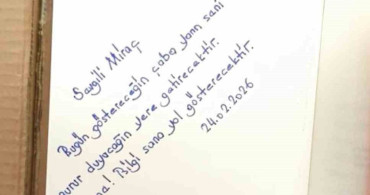 Sevgili Miraç
Bugün göstereceğin çaba yarın seni
gurur duyacağın yere getirecektir.
! Bilgi sana yol gösterecektir.
24.02.2026